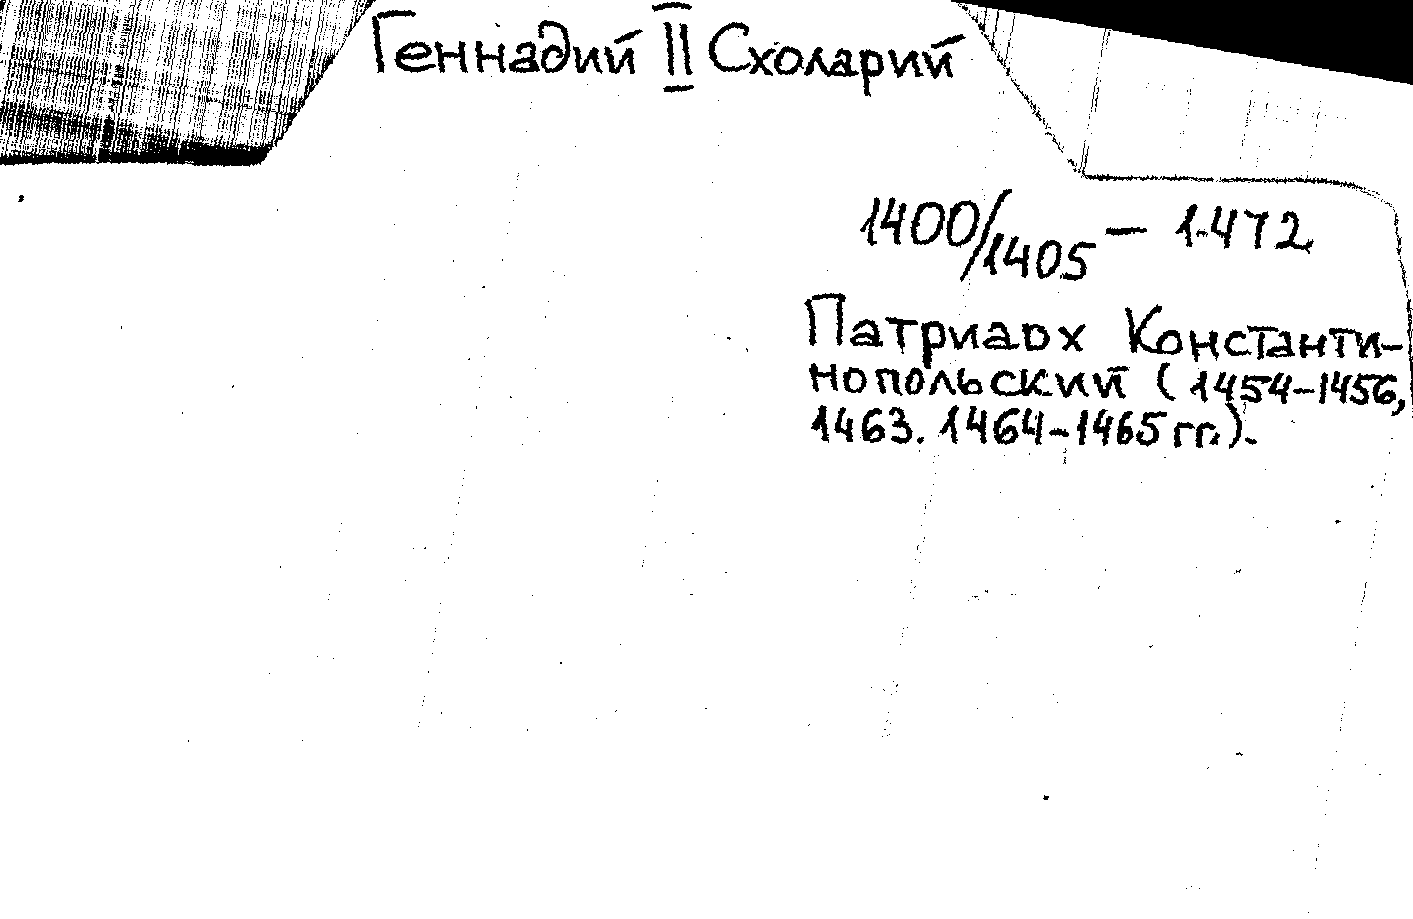 Геннадий II Схоларий
1400/1405 – 1472
Патриарх Константи-
нопольский (1454-1456,
1463. 1464-1465 гг.).